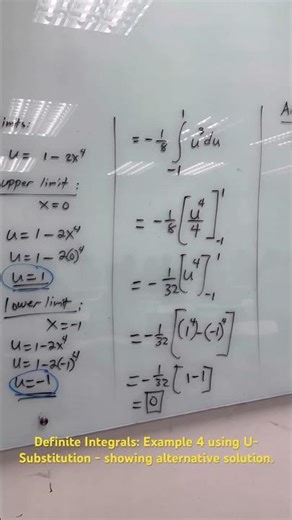 imits:
u = 1 - 2x⁴
upper limit:
x = 0
u = 1 - 2x⁴
u = 1 - 2(0)⁴
u = 1
lower limit:
x = -1
u = 1 - 2x⁴
u = 1 - 2(-1)⁴
u = -1
= -1/8 ∫₋₁¹ u³ du
= -1/8 [u⁴/4]₋₁¹
= -1/32 [u⁴]₋₁¹
= -1/32 [(1⁴) - (-1)⁴]
= -1/32 [1 - 1]
= 0
Definite Integrals: Example 4 using U-
Substitution - showing alternative solution.